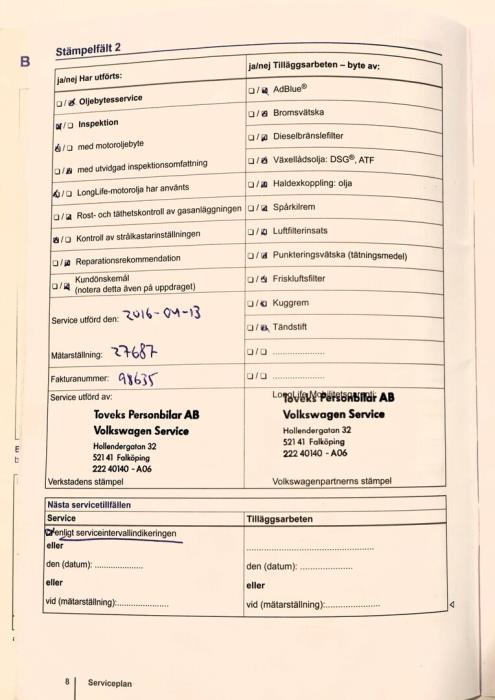 B
Stämpelfält 2
ja/nej Har utförts:
☐/☒ Oljebytesservice
☒/☐ Inspektion
☒/☐ med motoroljebyte
☐/☒ med utvidgad inspektionsomfattning
☒/☐ LongLife-motorolja har använts
☐/☒ Rost- och täthetskontroll av gasanläggningen
☒/☐ Kontroll av strålkastarinställningen
☐/☒ Reparationsrekommendation
☐/☒ Kundönskemål
(notera detta även på uppdraget)
Service utförd den: 2016-04-13
Mätarställning: 27687
Fakturanummer: 98635
Service utförd av:
Toveks Personbilar AB
Volkswagen Service
Hollendergatan 32
521 41 Falköping
222 40140 - A06
Verkstadens stämpel
ja/nej Tilläggsarbeten – byte av:
☐/☒ AdBlue®
☐/☒ Bromsvätska
☐/☒ Dieselbränslefilter
☐/☒ Växellådsolja: DSG®, ATF
☐/☒ Haldexkoppling: olja
☐/☒ Spårkilrem
☐/☒ Luftfilterinsats
☐/☒ Punkteringsvätska (tätningsmedel)
☐/☒ Friskluftsfilter
☐/☒ Kuggrem
☐/☒ Tändstift
☐/☐ ...............
☐/☐ ...............
Toveks Personbilar AB
Volkswagen Service
Hollendergatan 32
521 41 Falköping
222 40140 - A06
Volkswagenpartnerns stämpel
Nästa servicetillfällen
Service
enligt serviceintervallindikeringen
eller
den (datum): ...............
eller
vid (mätarställning): ...............
Tilläggsarbeten
...............
den (datum): ...............
eller
vid (mätarställning): ...............
8 Serviceplan